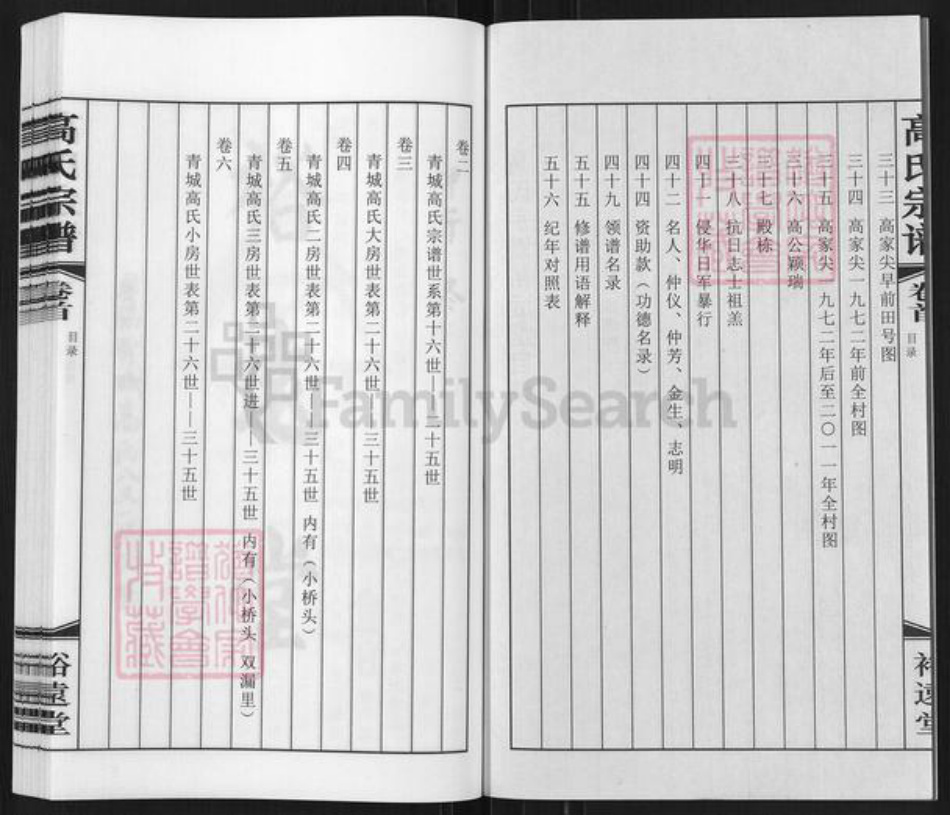 高氏宗谱 卷首 目录
三十三 高家尖早前田号图
三十四 高家尖一九七二年前全村图
三十五 高家尖一九七二年后至二〇一一年全村图
三十六 高公颖瑞
三十七 殿栋
三十八 抗日志士祖羔
四十一 侵华日军暴行
四十二 名人、仲仪、仲芳、金生、志明
四十四 资助款（功德名录）
四十九 领谱名录
五十五 修谱用语解释
五十六 纪年对照表
裕远堂
卷二
青城高氏宗谱世系第十六世——二十五世
卷三
青城高氏大房世表第二十六世——三十五世
卷四
青城高氏二房世表第二十六世——三十五世 内有（小桥头）
卷五
青城高氏三房世表第二十六世进——三十五世 内有（小桥头 双漏里）
卷六
青城高氏小房世表第二十六世——三十五世
高氏宗谱 卷首 目录
裕远堂
FamilySearch